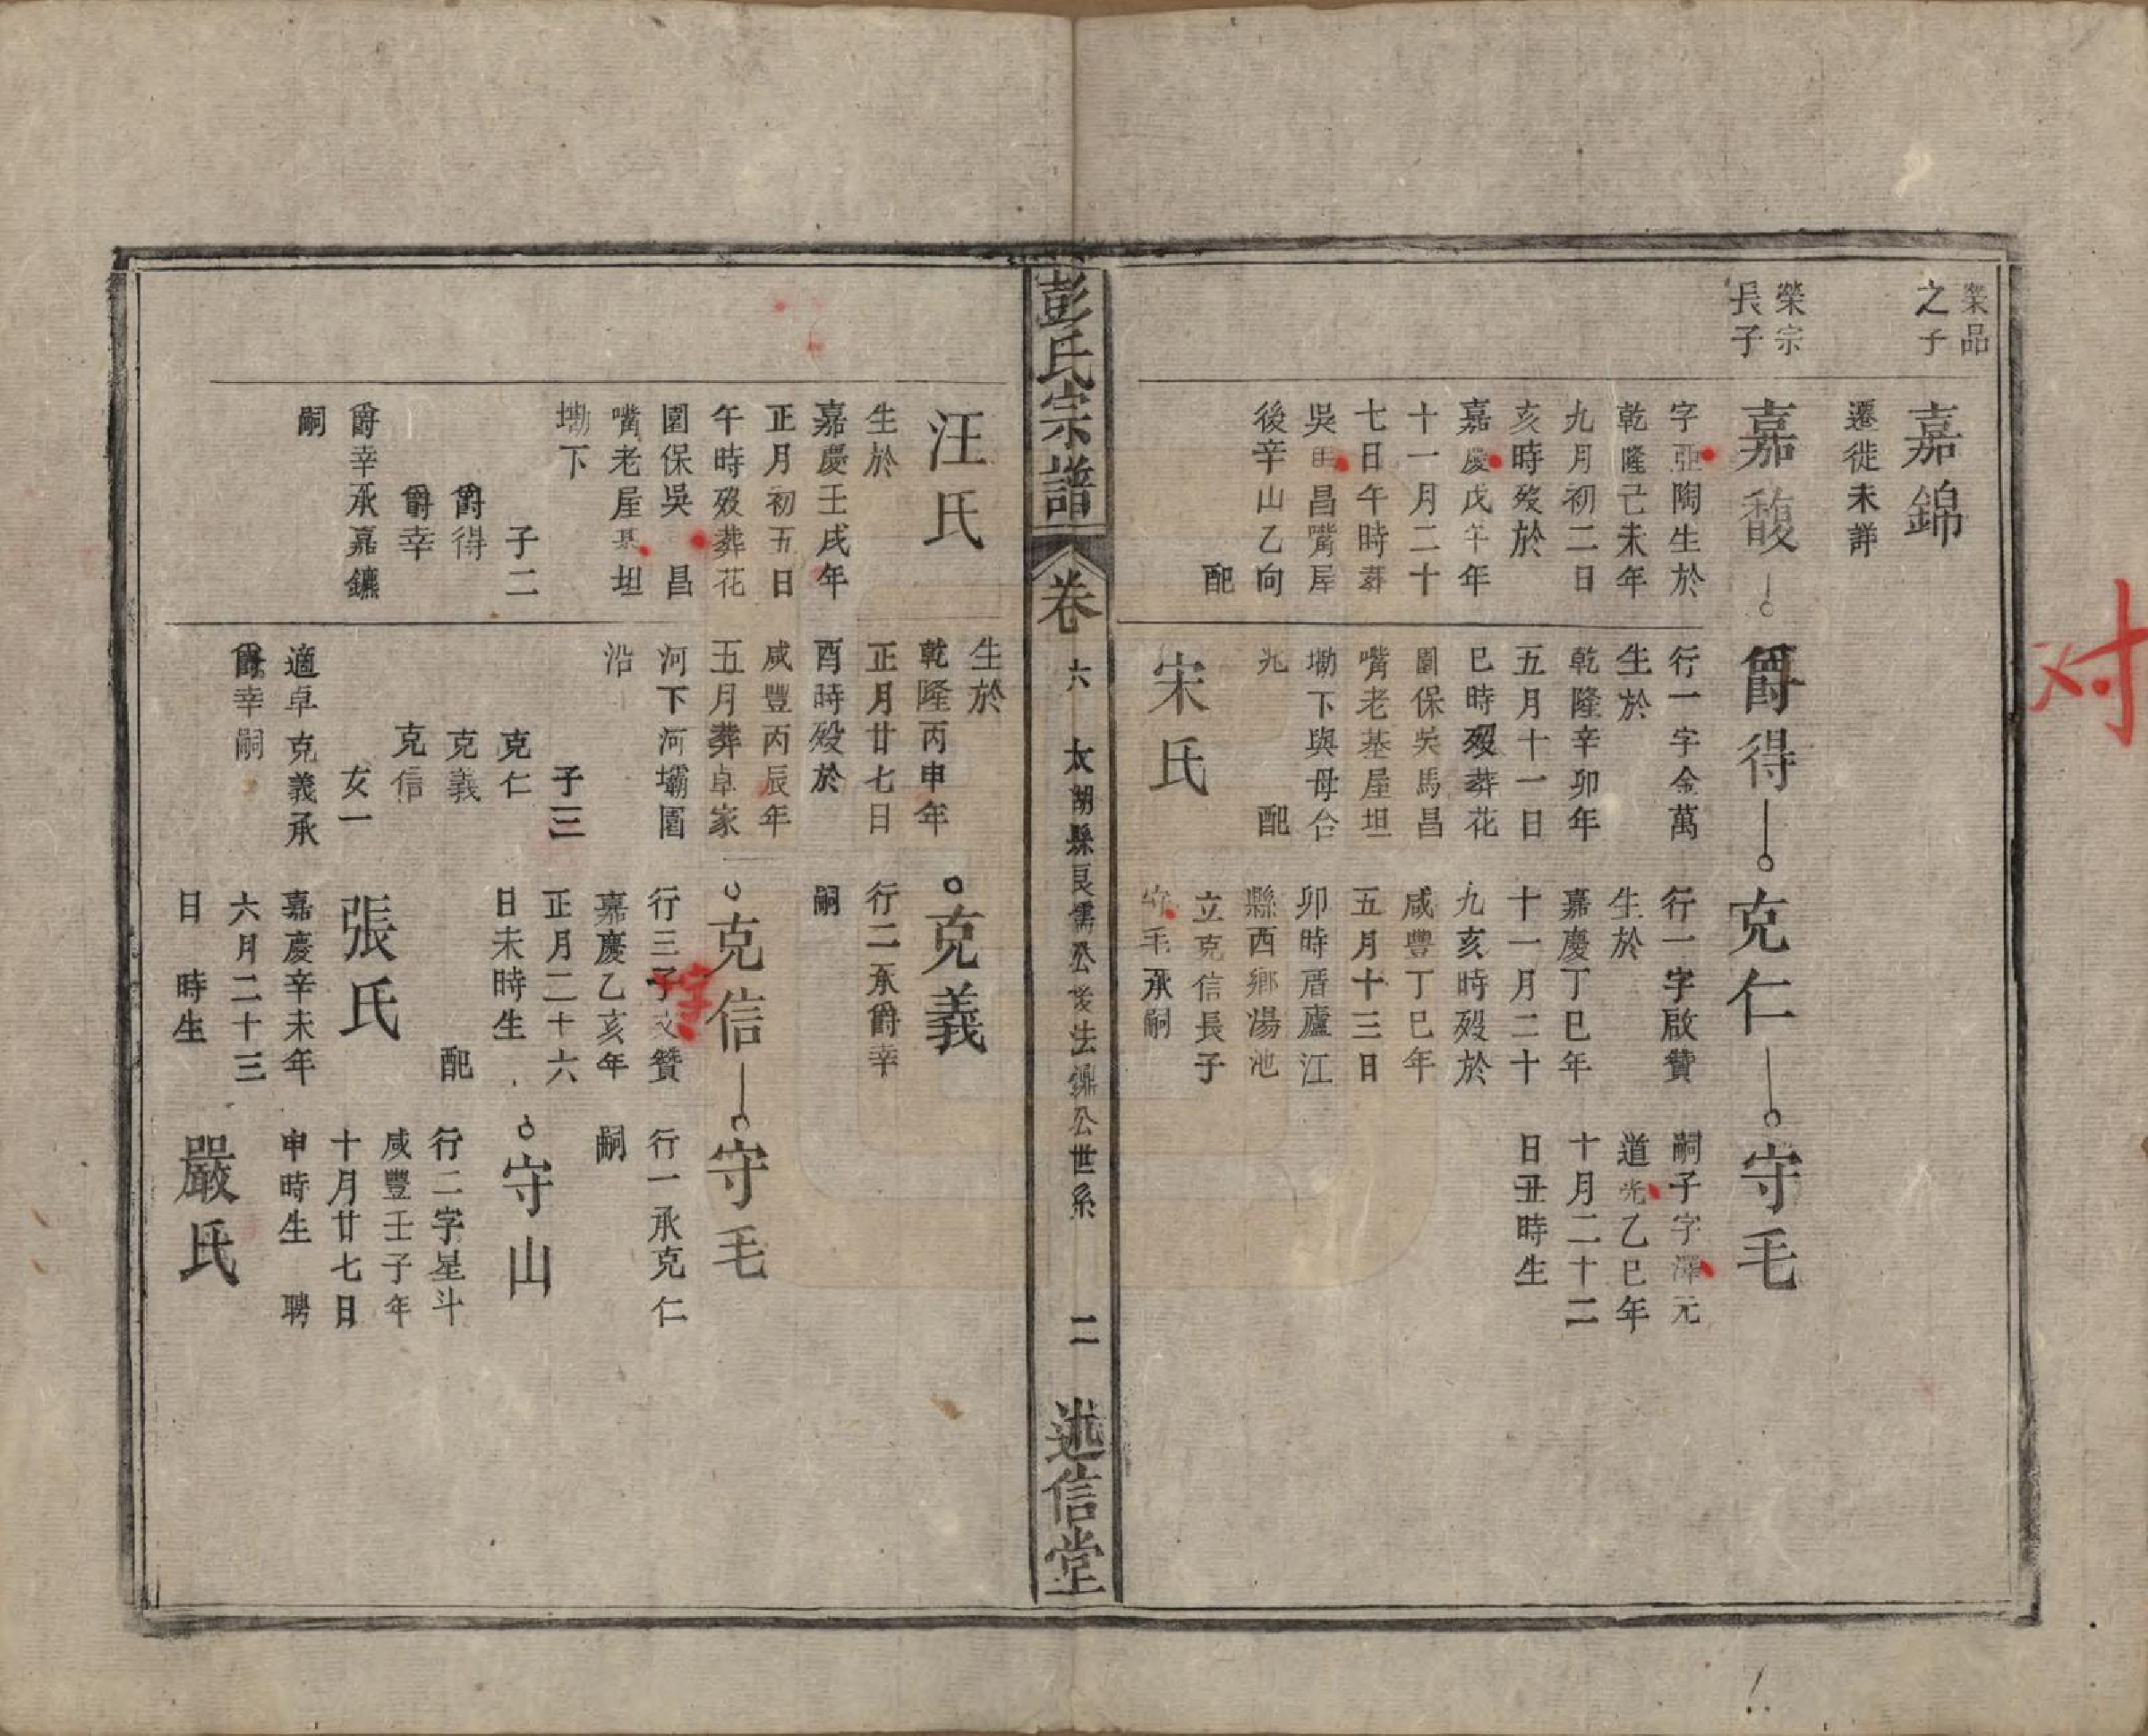 榮品
之子
嘉錦
遷徙未詳
榮宗
長子
嘉馥
字亞陶生於
乾隆己未年
九月初二日
亥時歿於
嘉慶戊午年
十一月二十
七日午時葬
吳田昌嘴屋
後辛山乙向
配
爵得
行一字金萬
生於
乾隆辛卯年
五月十一日
巳時歿葬花
園保吳馬昌
嘴老基屋坦
塝下與母合
兆
配
宋氏
克仁
行一字啟贊
生於
嘉慶丁巳年
十一月二十
九亥時歿於
咸豐丁巳年
五月十三日
卯時厝廬江
縣西鄉湯池
立克信長子
守毛承嗣
守毛
嗣子字澤元
道光乙巳年
十月二十二
日丑時生
彭氏宗譜
卷六
太湖縣良儒公後法鼎公世系
二
述信堂
汪氏
生於
嘉慶壬戌年
正月初五日
午時歿葬花
園保吳 昌
嘴老屋基坦
塝下
子二
爵得
爵幸
爵幸承嘉鑣
嗣
生於
乾隆丙申年
正月廿七日
酉時歿於
咸豐丙辰年
五月葬卓家
河下河壩園
沿
子三
克仁
克義
克信
女一
適卓克義承
爵幸嗣
克義
行二承爵幸
嗣
克信
行三子文贊
字
嘉慶乙亥年
正月二十六
日未時生
配
張氏
嘉慶辛未年
六月二十三
日 時生
守毛
行一承克仁
嗣
守山
行二字星斗
咸豐壬子年
十月廿七日
申時生 聘
嚴氏
对